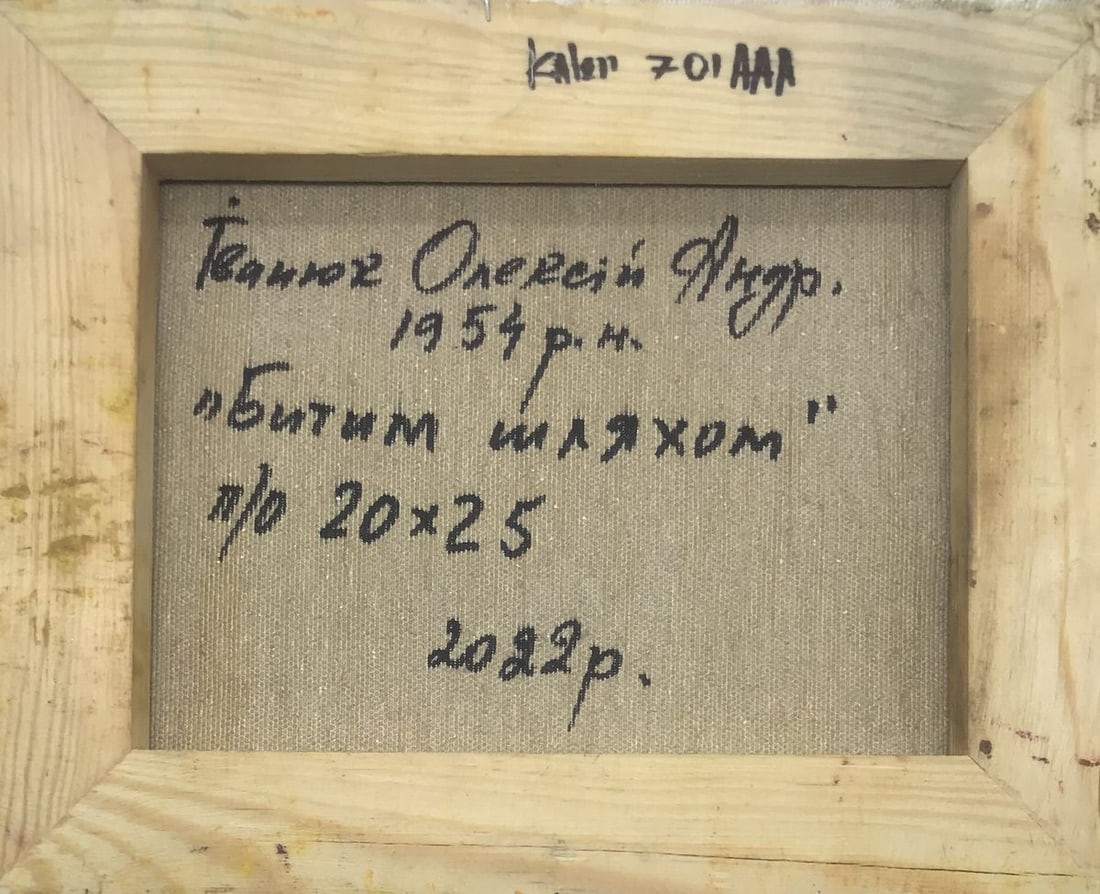 701AAA
Іванюк Олексій Андр.
1954 р.н.
"Битим шляхом"
п/о 20×25
2022р.